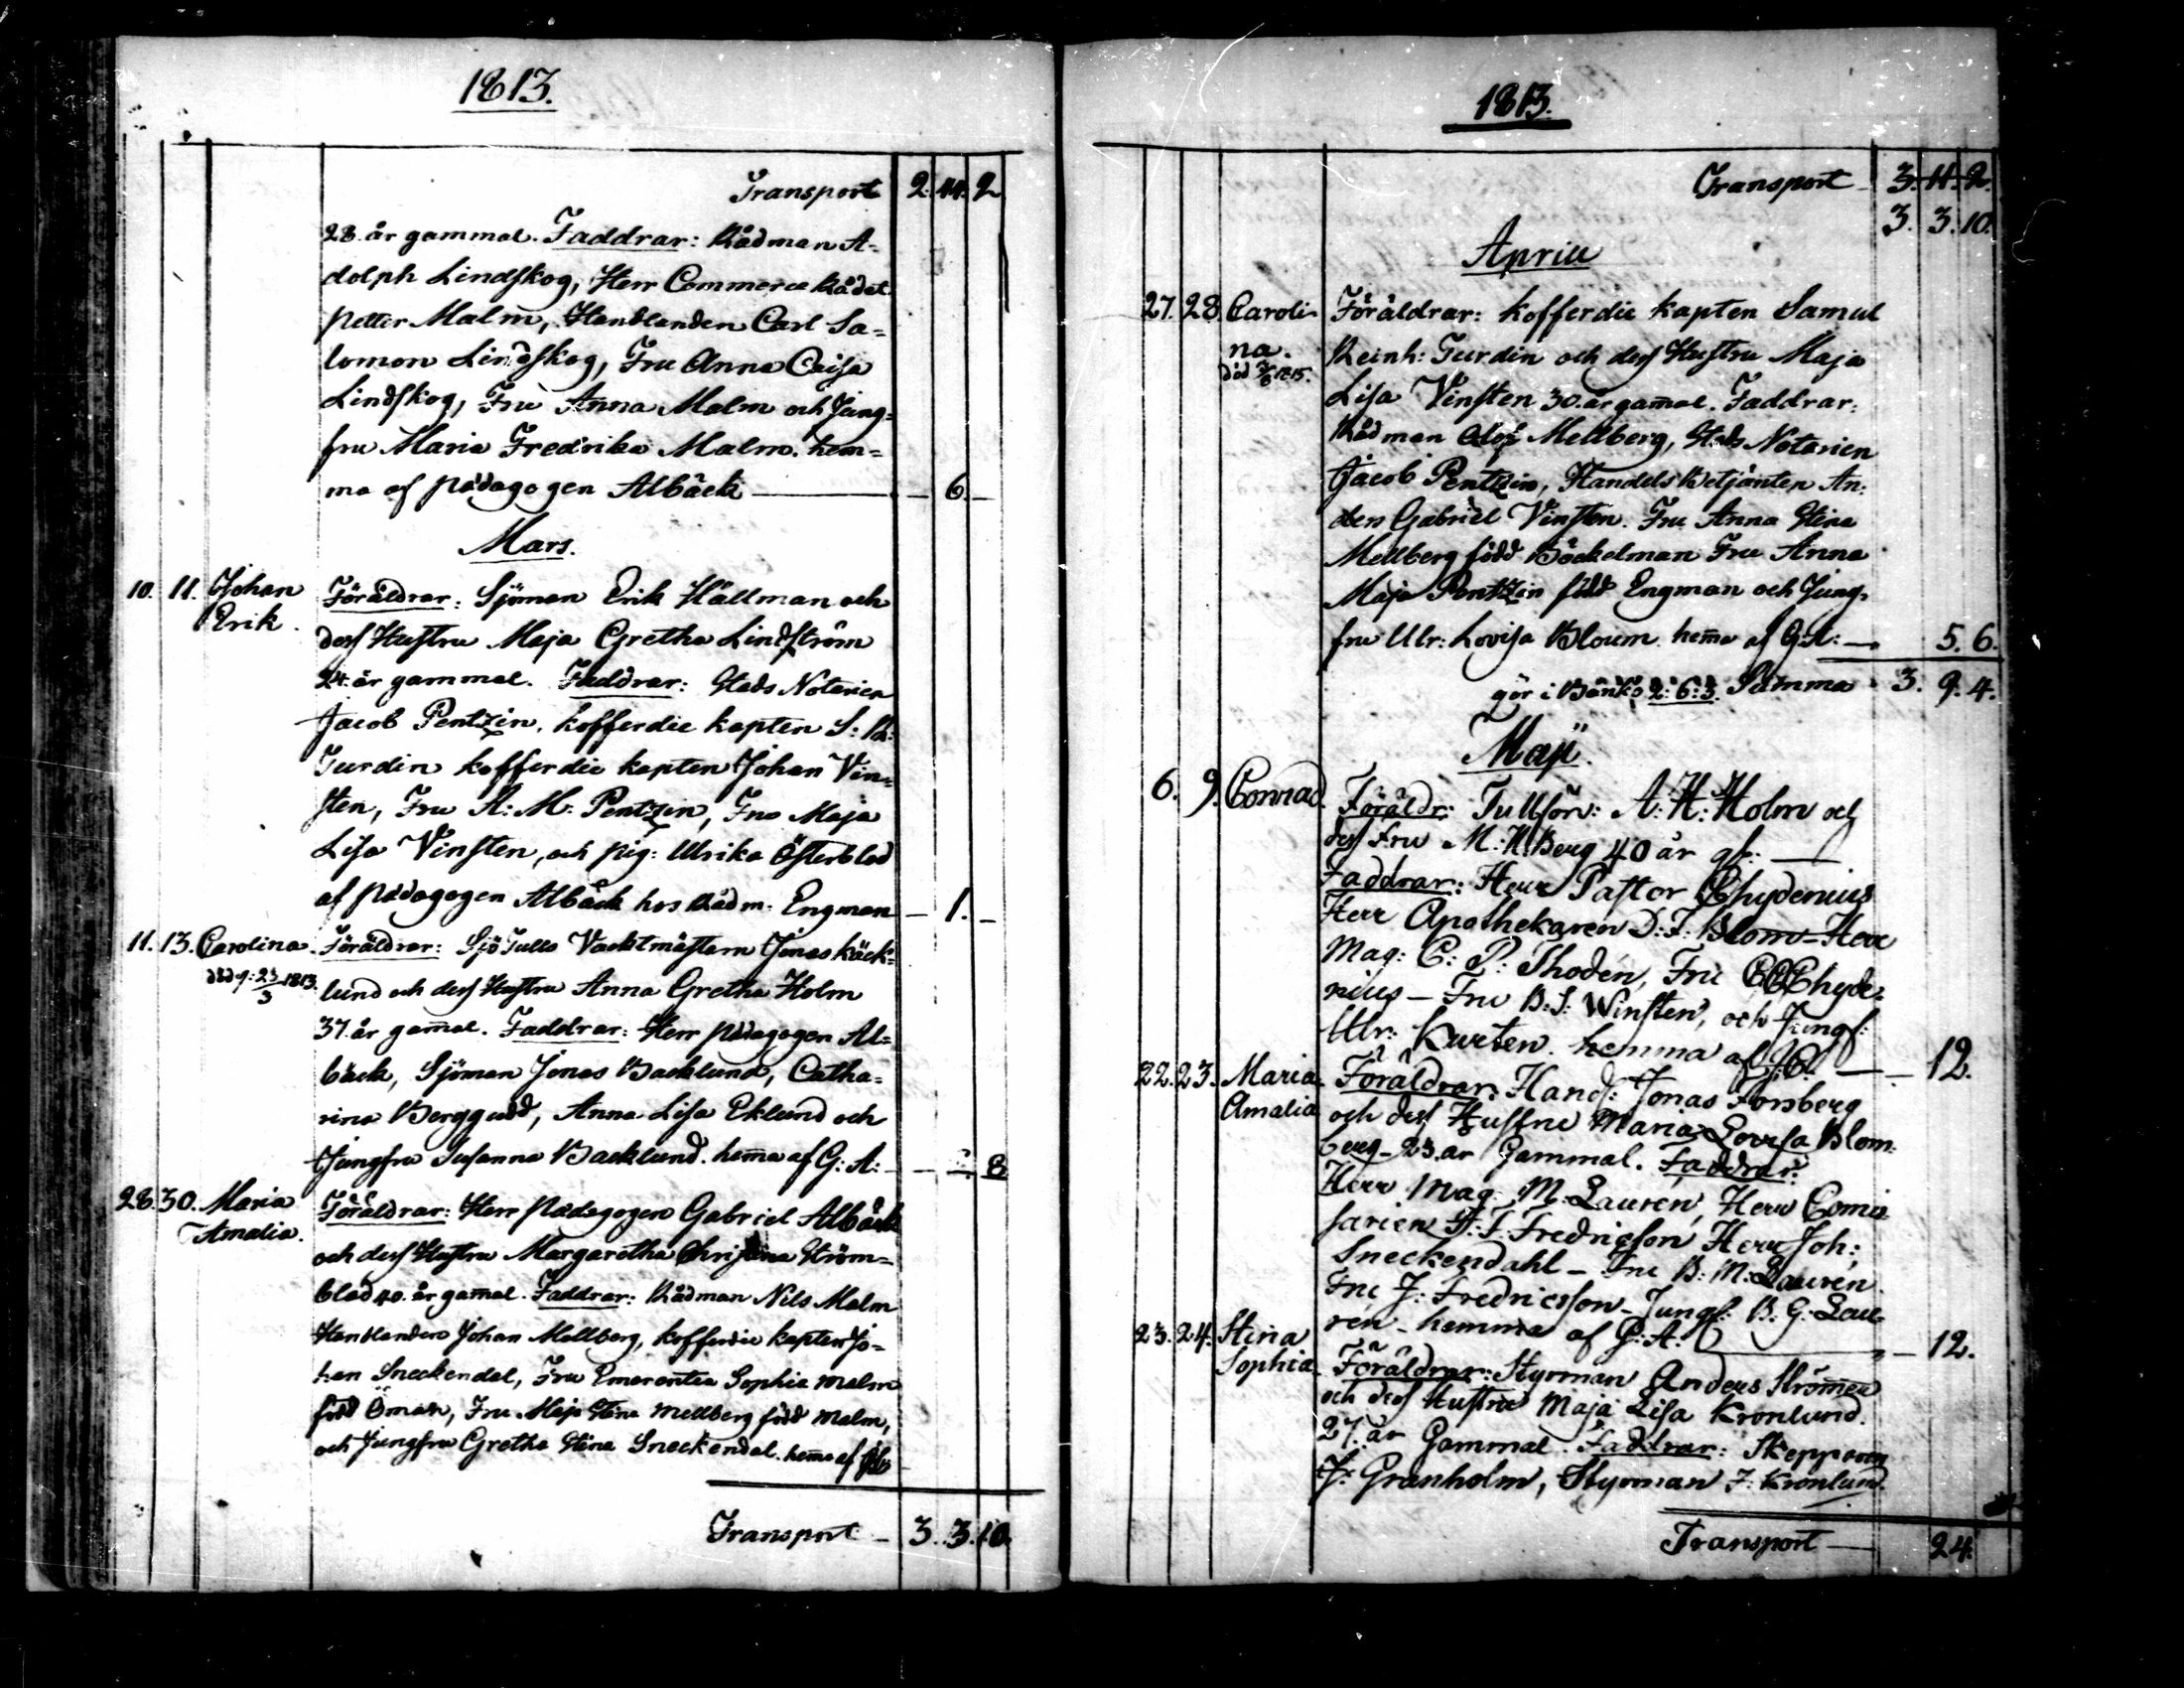 1813.
Transport 2. 44. 2
28. år gammal. Faddrar: Rådman A-
dolph Lindskog, Herr Commerce Rådet
Petter Malm, Handlanden Carl Sa=
lomon Lindskog, Fru Anna Caisa
Lindskog, Fru Anna Malm och Jung=
fru Maria Fredrika Malm. hem=
ma af Pædagogen Albäck — — 6. —
Mars.
10. 11. Johan Föräldrar: Sjöman Erik Hällman och
Erik. dess Hustru Maja Gretha Lindström
24. år gammal. Faddrar: Stads Notarien
Jacob Pentzin, kofferdie kapten S: R:
Turdin kofferdie kapten Johan Vin=
sten, Fru A: M: Pentzin, Fru Maja
Lisa Vinsten, och pig: Ulrika Österblad
af Pædagogen Albäck hos Rådm: Engman — 1. —
11. 13. Carolina. Föräldrar: Sjö Tulls Vacktmästarn Jonas Bäck=
död q: 23/3 1813. lund och dess Hustru Anna Gretha Holm
37. år gam̅al. Faddrar: Herr Pædagogen Al=
bäck, Sjöman Jonas Backlund, Catha=
rina Berggudd, Anna Lisa Eklund och
Jungfru Susanna Backlund. hem̅a af G: A: — 8
28. 30. Maria Föräldrar: Herr Pædagogen Gabriel Albäck
Amalia. och dess Hustru Margaretha Christina Ström=
blad 40. år gam̅al. Faddrar: Rådman Nils Malm
Handlanden Johan Mellberg, kofferdie kapten Jo=
han Sneckendal, Fru Emerentia Sophia Malm
född Öman, Fru Maja Stina Mellberg född Malm,
och Jungfru Gretha Stina Sneckendal. hem̅a af
Transport — 3. 3. 10.
1813.
Transport — 3. 11. 2.
3. 3. 10.
Aprill
27. 28. Caroli- Föräldrar: Kofferdie kapten Samul
na. Reinh: Turdin och dess Hustru Maja
död 1815. Lisa Vinsten 30. år gam̅al. Faddrar:
Rådman Olof Mellberg, Stads Notarien
Jacob Pentzin, Handels Betjänten An:
ders Gabriel Vinsten. Fru Anna Stina
Mellberg född Böckelman Fru Anna
Maja Pentzin född Engman och Jung-
fru Ulr: Lovisa Bloum. hem̅a af G: A: — 5. 6.
gör i Banko 2: 6: 3. Summa 3. 9. 4.
Maji.
6. 9. Conrad. Föräldr: Tullför: A: H: Holm och
dess Fru M: H: Berg 40 år gl: —
Faddrar: Herr Pastor Chydenius
Herr Apothekaren D: F: Blom – Herr
Mag: C: P: Thodén, Fru Chyde-
nius – Fru B: S: Winsten, och Jungf:
Ulr: Kurtén. hemma af J: C. — 12.
22. 23. Maria Föräldrar: Handl: Jonas Forsberg
Amalia och dess Hustru Maria Lovisa Blom-
berg – 23. år Gammal. Faddrar:
Herr Mag: M: Laurén, Herr Comis-
sarien F. Fredricsson Herr Joh:
Sneckendahl – Fru B: M: Laurén.
Fru J: Fredricsson – Jungf: B. G. Lau-
rén – hemma af G: A: — 12.
23. 24. Stina Föräldrar: Styrman Anders Strömmer
Sophia och dess Hustru Maja Lisa Kronlund.
27. år Gammal. Faddrar: Skepparen
J: Granholm, Styrman J: Kronlund.
Transport — 24.